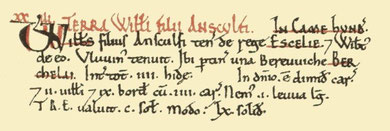 TERRA Willi filii Ansculfi. In Came hund.
Willes filius Ansculfi ten de rege ESCELIE 7 Wibt
de eo. Vluuin tenuit. Ibi ptin una Bereuuiche BER
CHELAI. Int tot .iiii. hide. In dnio e dimid car
7 .ii. uilli 7 .ix. bord cu .iiii. car. Nem .i. leuua lg.
T.R.E. ualuit c. sol. Modo: lx solid.